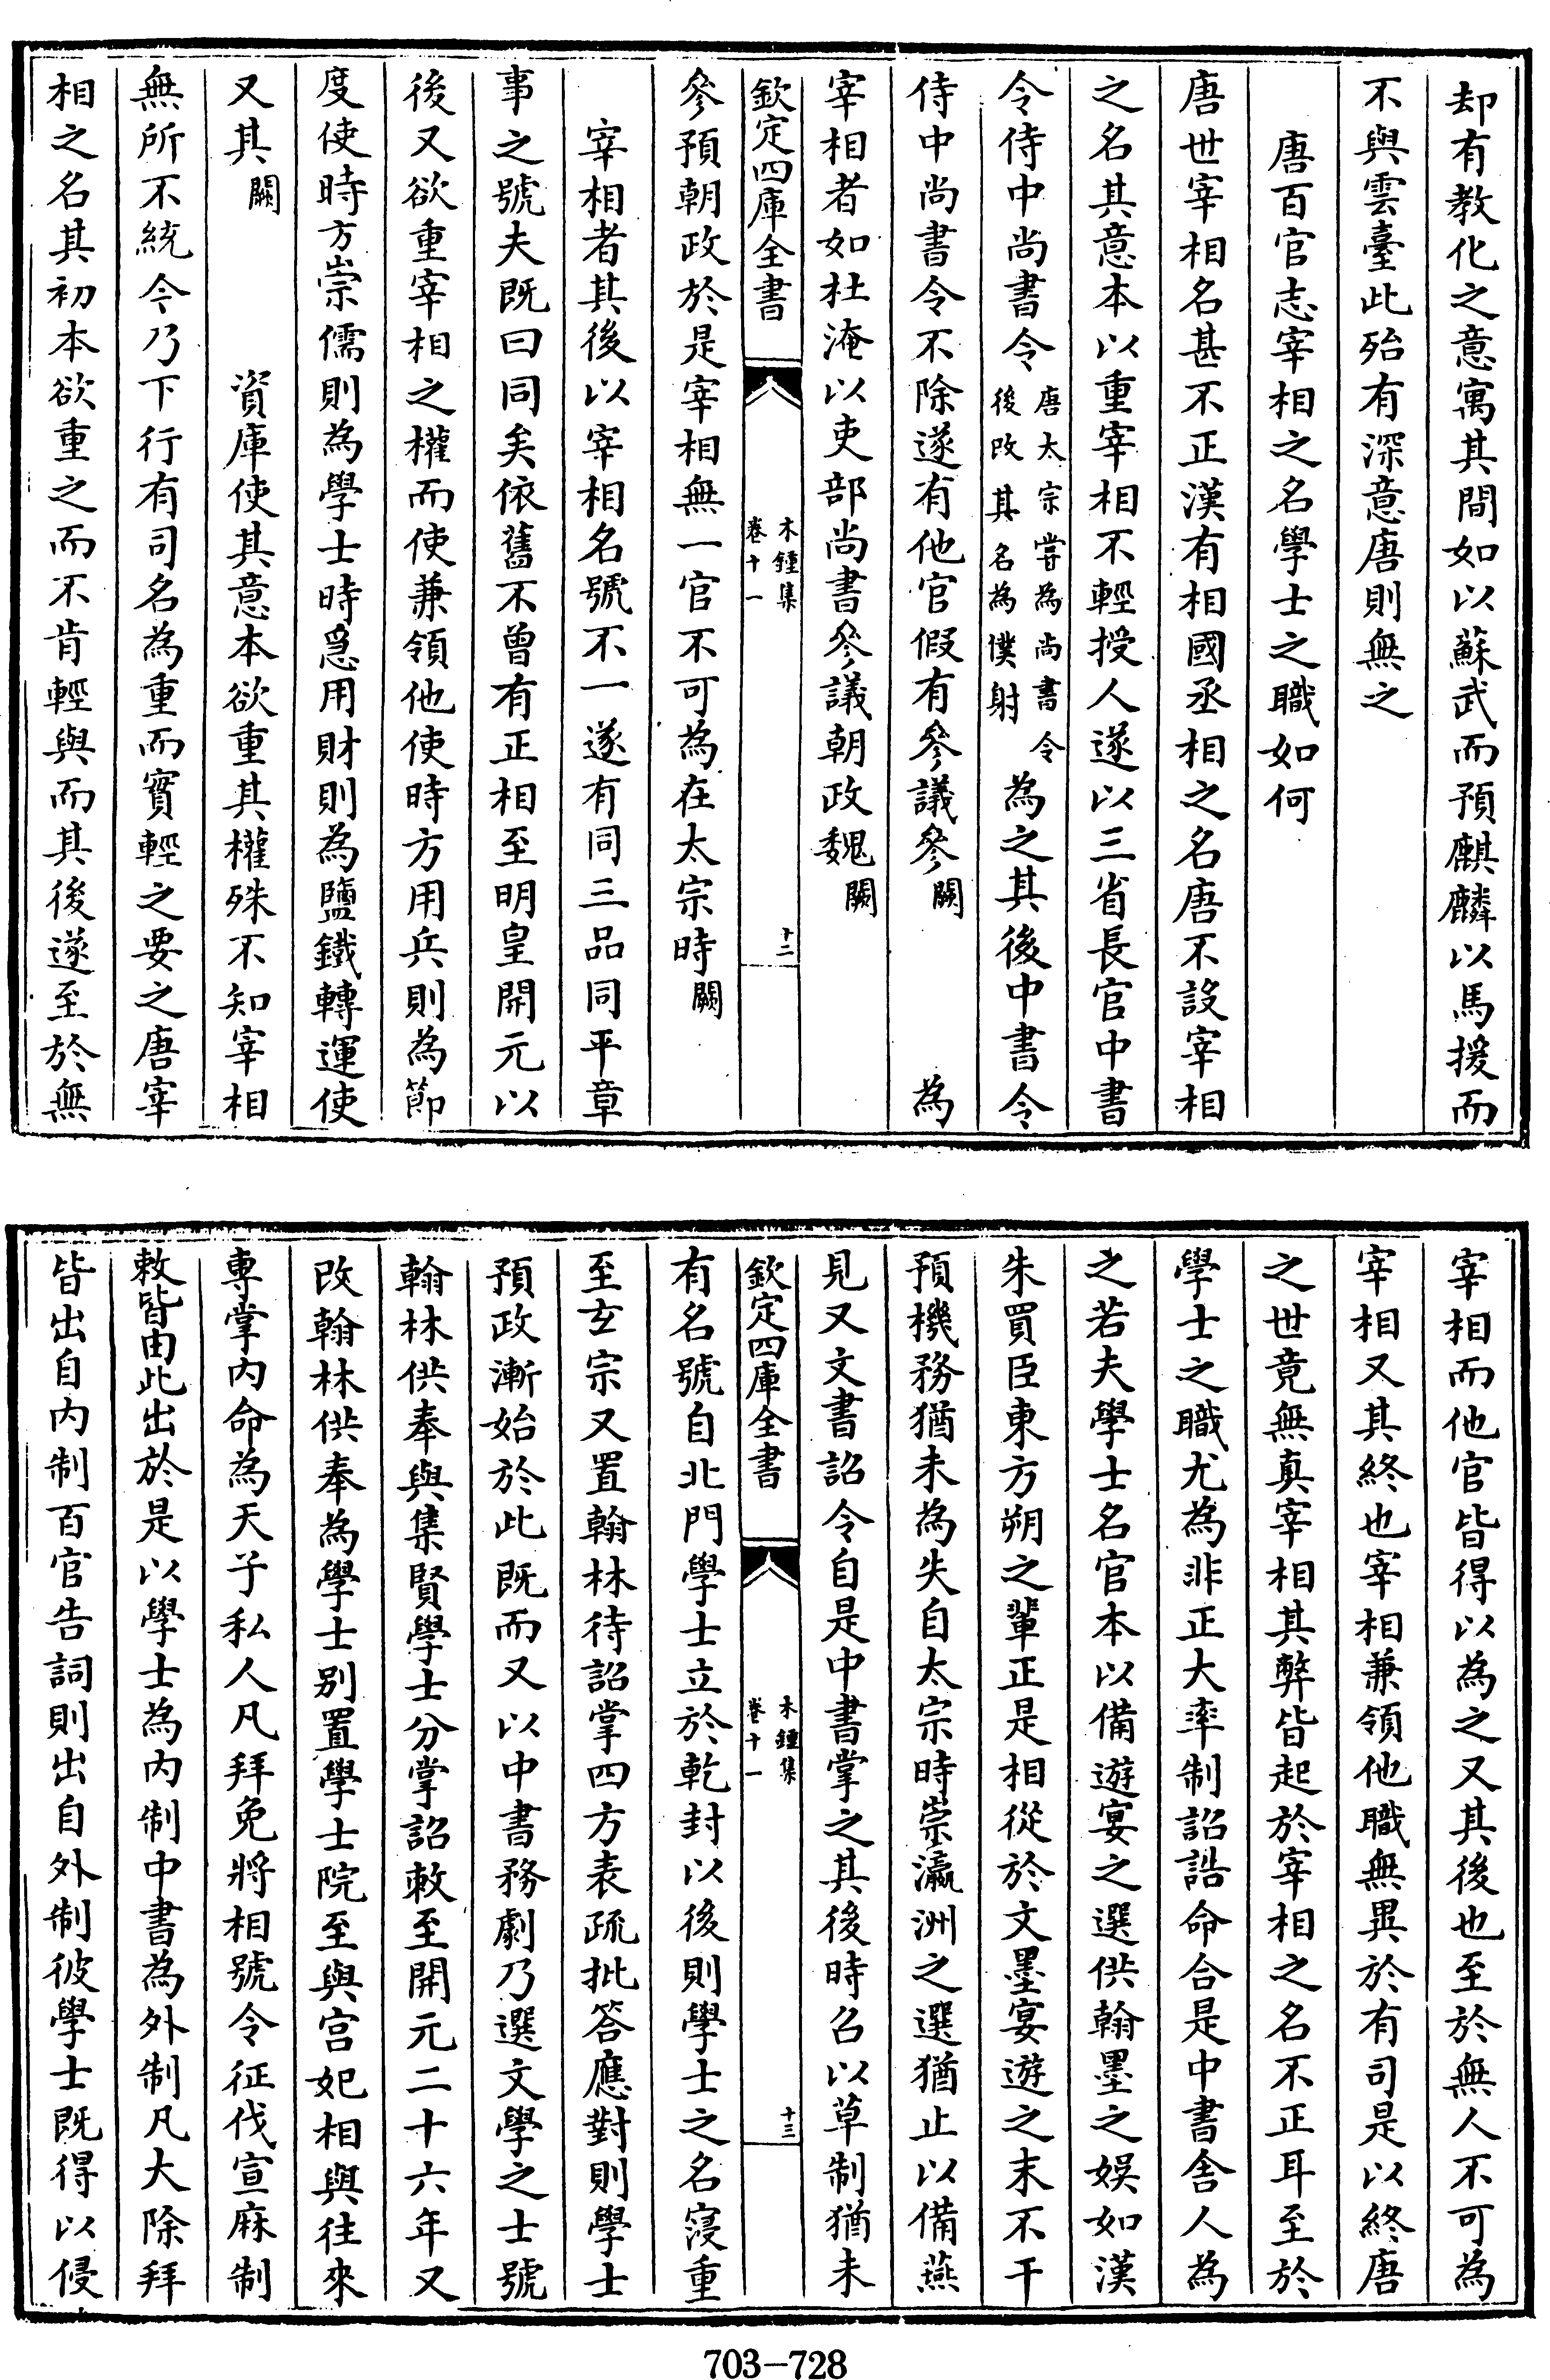 却有教化之意寓其間如以蘇武而預麒麟以馬援而
不與雲臺此殆有深意唐則無之
唐百官志宰相之名學士之職如何
唐世宰相名甚不正漢有相國丞相之名唐不設宰相
之名其意本以重宰相不輕授人遂以三省長官中書
令侍中尚書令唐太宗嘗為尚書令後改其名為僕射為之其後中書令
侍中尚書令不除遂有他官假有參議參闕為
宰相者如杜淹以吏部尚書參議朝政魏闕
欽定四庫全書 木鍾集 卷十一 十二
參預朝政於是宰相無一官不可為在太宗時闕
宰相者其後以宰相名號不一遂有同三品同平章
事之號夫既曰同矣依舊不曾有正相至明皇開元以
後又欲重宰相之權而使兼領他使時方用兵則為節
度使時方崇儒則為學士時急用財則為鹽鐵轉運使
又其闕資庫使其意本欲重其權殊不知宰相
無所不統今乃下行有司名為重而實輕之要之唐宰
相之名其初本欲重之而不肯輕與而其後遂至於無
宰相而他官皆得以為之又其後也至於無人不可為
宰相又其終也宰相兼領他職無異於有司是以終唐
之世竟無真宰相其弊皆起於宰相之名不正耳至於
學士之職尤為非正大率制詔誥命合是中書舍人為
之若夫學士名官本以備遊宴之選供翰墨之娛如漢
朱買臣東方朔之輩正是相從於文墨宴遊之末不干
預機務猶未為失自太宗時崇瀛洲之選猶止以備燕
見又文書詔令自是中書掌之其後時召以草制猶未
欽定四庫全書 木鍾集 卷十一 十三
有名號自北門學士立於乾封以後則學士之名寖重
至玄宗又置翰林待詔掌四方表疏批答應對則學士
預政漸始於此既而又以中書務劇乃選文學之士號
翰林供奉與集賢學士分掌詔敕至開元二十六年又
改翰林供奉為學士別置學士院至與宮妃相與往來
專掌內命為天子私人凡拜免將相號令征伐宣麻制
敕皆由此出於是以學士為內制中書為外制凡大除拜
皆出自內制百官告詞則出自外制彼學士既得以侵
703-728